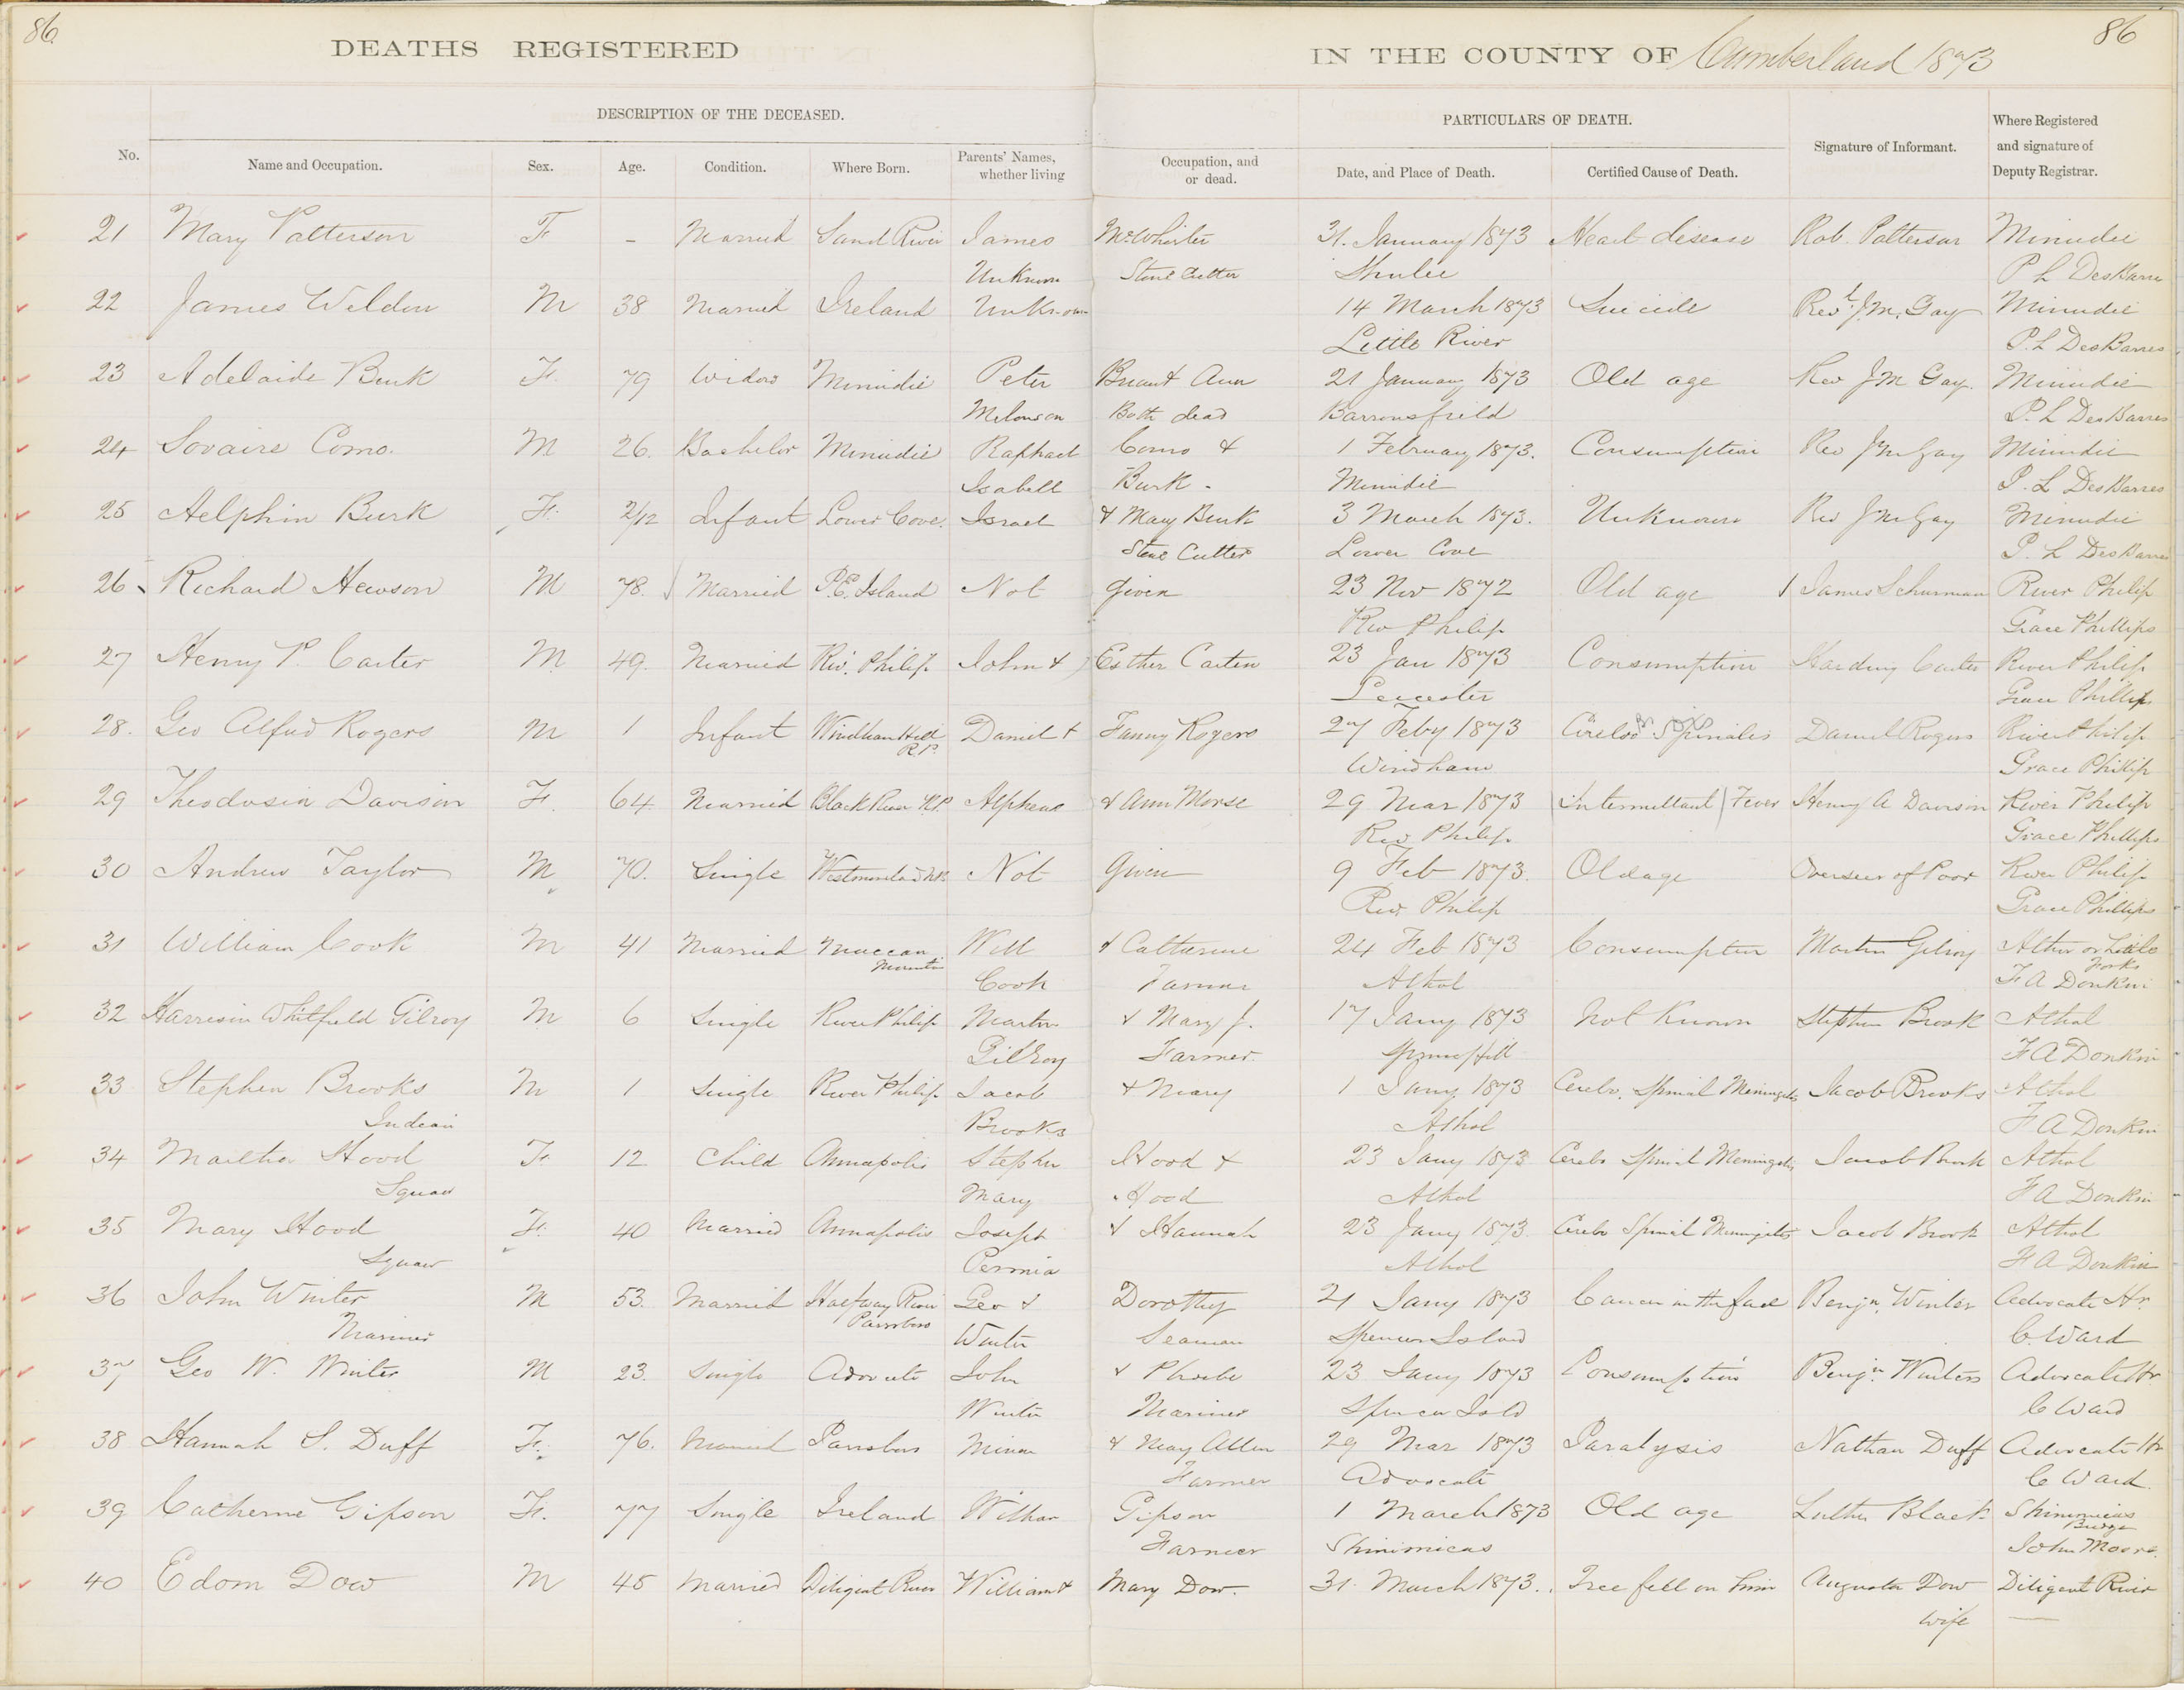 86
86
DEATHS REGISTERED IN THE COUNTY OF Cumberland 1873
DESCRIPTION OF THE DECEASED.
PARTICULARS OF DEATH.
No. Name and Occupation. Sex. Age. Condition. Where Born. Parents' Names, whether living Occupation, and or dead. Date, and Place of Death. Certified Cause of Death. Signature of Informant. Where Registered and signature of Deputy Registrar.
21 Mary Patterson F - Married Sand River James McWhirter 31. January 1873 Heart disease Rob. Patterson Minudie
Unknown Stone Cutter Shulee P L DesBarres
22 James Weldon M 38 Married Ireland Unknown 14 March 1873 Suicide Revd. J. M. Gay Minudie
Little River P. L DesBarres
23 Adelaide Burk F. 79 Widow Minudie Peter & Ann 21 January 1873 Old age Rev J M Gay. Minudie
Melonson Both dead Barronsfield P. L DesBarres
24 Sovaire Como. M 26. Bachelor Minudie Raphael Como & 1 February 1873. Consumption Rev J M Gay Minudie
Isabell Burk - Minudie P. L DesBarres
25 Aelphin Burk F. 2/12 Infant Lower Cove. Israel & Mary Burk 3 March 1873. Unknown Rev J M Gay Minudie
Stone Cutter Lower Cove P. L DesBarres
26 Richard Hewson M 78. Married P.E. Island Not given 23 Nov 1872 Old age James Schurman River Philip
Riv Philip Grace Phillips
27 Henry P. Carter M 49. Married Riv. Philip John & Esther Carter 23 Jan 1873 Consumption Harding Carter River Philip
Leicester Grace Phillips
28. Geo Alfred Rogers M 1 Infant Windham Hill R.P. Daniel & Fanny Rogers 27 Feby 1873 Spinalis Daniel Rogers River Philip
Windham Grace Phillip
29 Theodosia Davison F. 64 Married Black River R.P. Alpheus & Ann Morse 29 Mar 1873 Intermittant Fever Henry A Davison River Philip
Riv Philip. Grace Phillips
30 Andrew Taylor M 70. Single Westmorland N.B. Not Given 9 Feb 1873. Old age Overseer of Poor River Philip
Riv. Philip Grace Phillips
31 William Cook M 41 Married Maccan Mountain Will & Catharine 24 Feb 1873 Consumption Martin Gilroy Athol or Little Forks
Cook Farmer Athol F A Donkin
32 Harrison Whitfield Gilroy M 6 Single River Philip Martin & Mary J. 17 Jany 1873 Not Known Stephen Brook Athol
Gilroy Farmer Spring Hill F A Donkin
33 Stephen Brooks M 1 Single River Philip Jacob & Mary 1 Jany 1873 Cerebro. Spinal Meningitis Jacob Brooks Athol
Indian Brooks Athol F A Donkin
34 Martha Hood F. 12 Child Annapolis Stephen Hood & 23 Jany 1873 Cerebro Spinal Meningitis Jacob Brook Athol
Squaw Mary Hood Athol F A Donkin
35 Mary Hood F. 40 Married Annapolis Joseph & Hannah 23 Jany 1873. Cerebro Spinal Meningitis Jacob Brook Athol
Squaw Pernia Athol F A Donkin
36 John Winter M 53. Married Halfway River Parrsboro Geo & Dorothy 21 Jany 1873 Cancer in the face Benjn. Winter Advocate Hr.
Mariner Winter Seaman Spencers Island C. Ward
37 Geo W. Winter M 23. Single Advocate John & Phoebe 23 Jany 1873 Consumption Benjn. Winters Advocate Hr.
Winter Mariner Spencer Isld C Ward
38 Hannah S. Duff F. 76. Married Parrsboro & Mary Allen 29 Mar 1873 Paralysis Nathan Duff Advocate Hr
Farmer Advocate C Ward.
39 Catherine Gipson F. 77 Single Ireland William Gipson 1 March 1873 Old age Luther Black Shinimicas Bridge
Farmer Shinimicas John Moore.
40 Edom Dow M 45 Married Diligent River William & Mary Dow. 31. March 1873. Tree fell on him Augusta Dow Diligent River
wife